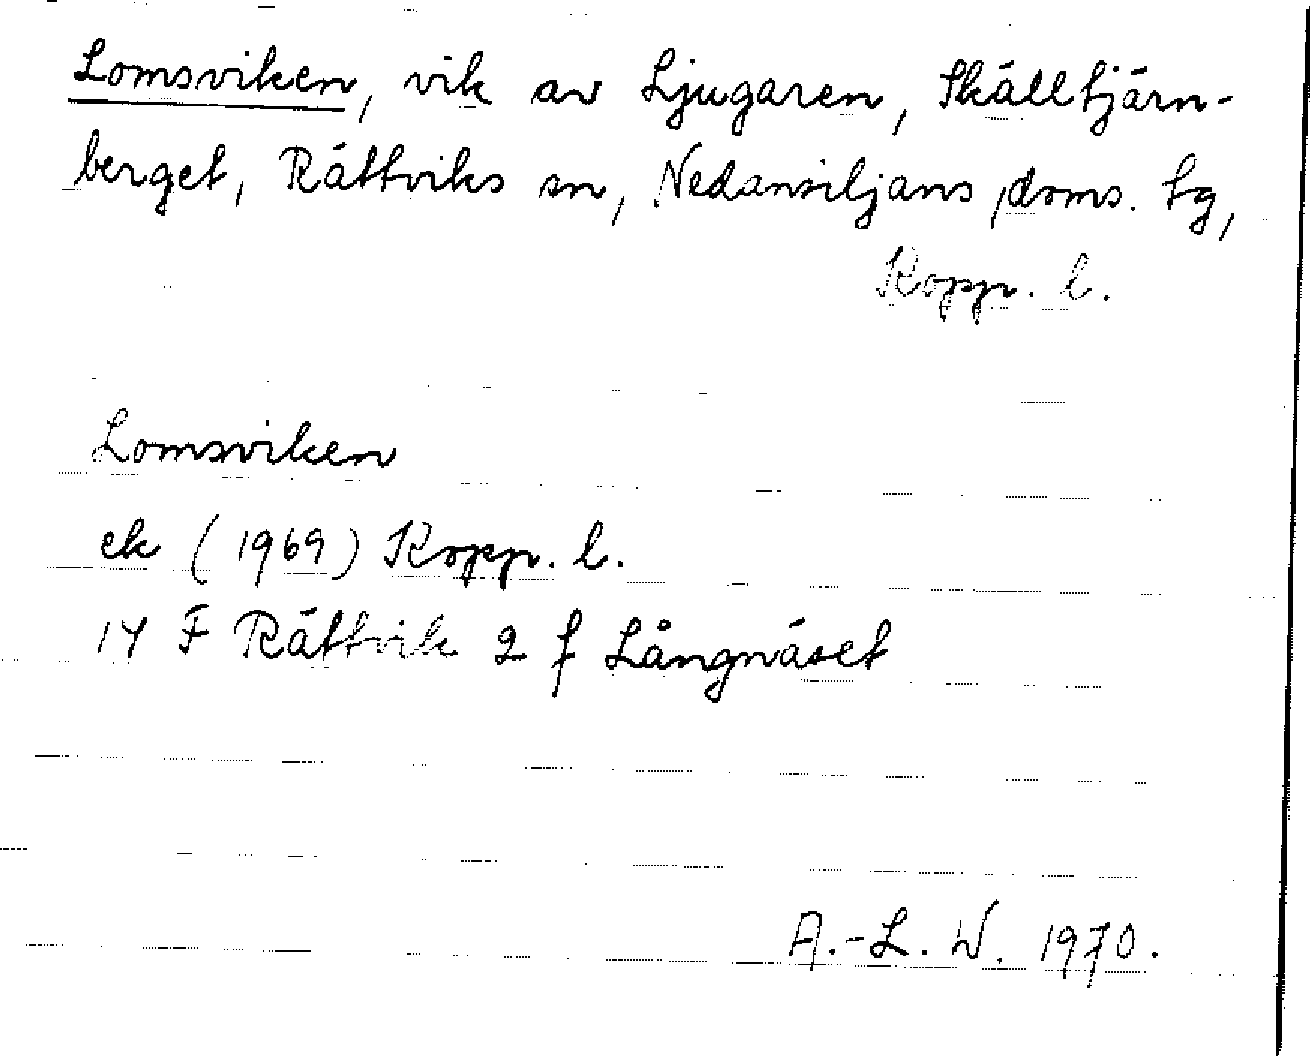 Lomsviken, vik av Ljugaren, Skålltjärn-
berget, Rättviks sn, Nedansiljans doms. tg,
Kopp. l.
Lomsviken
ek (1969) Kopp. l.
14 F Rättvik 2 f Långnäset
A.-L. W. 1970.